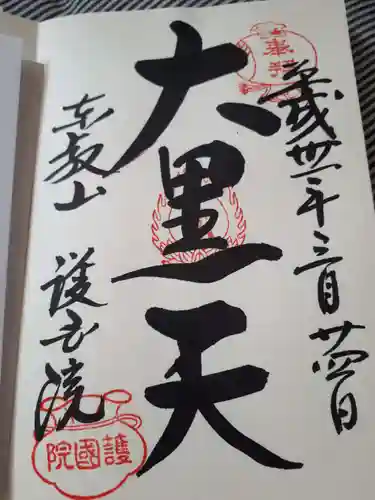 奉拝
平成卅一年三月廿四日
大黒天
東叡山
護国院
護國院